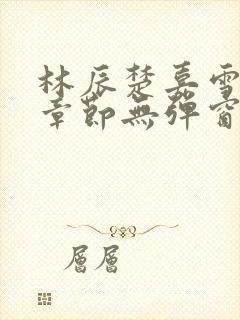 林辰楚嘉雪
章節無彈窗
層層